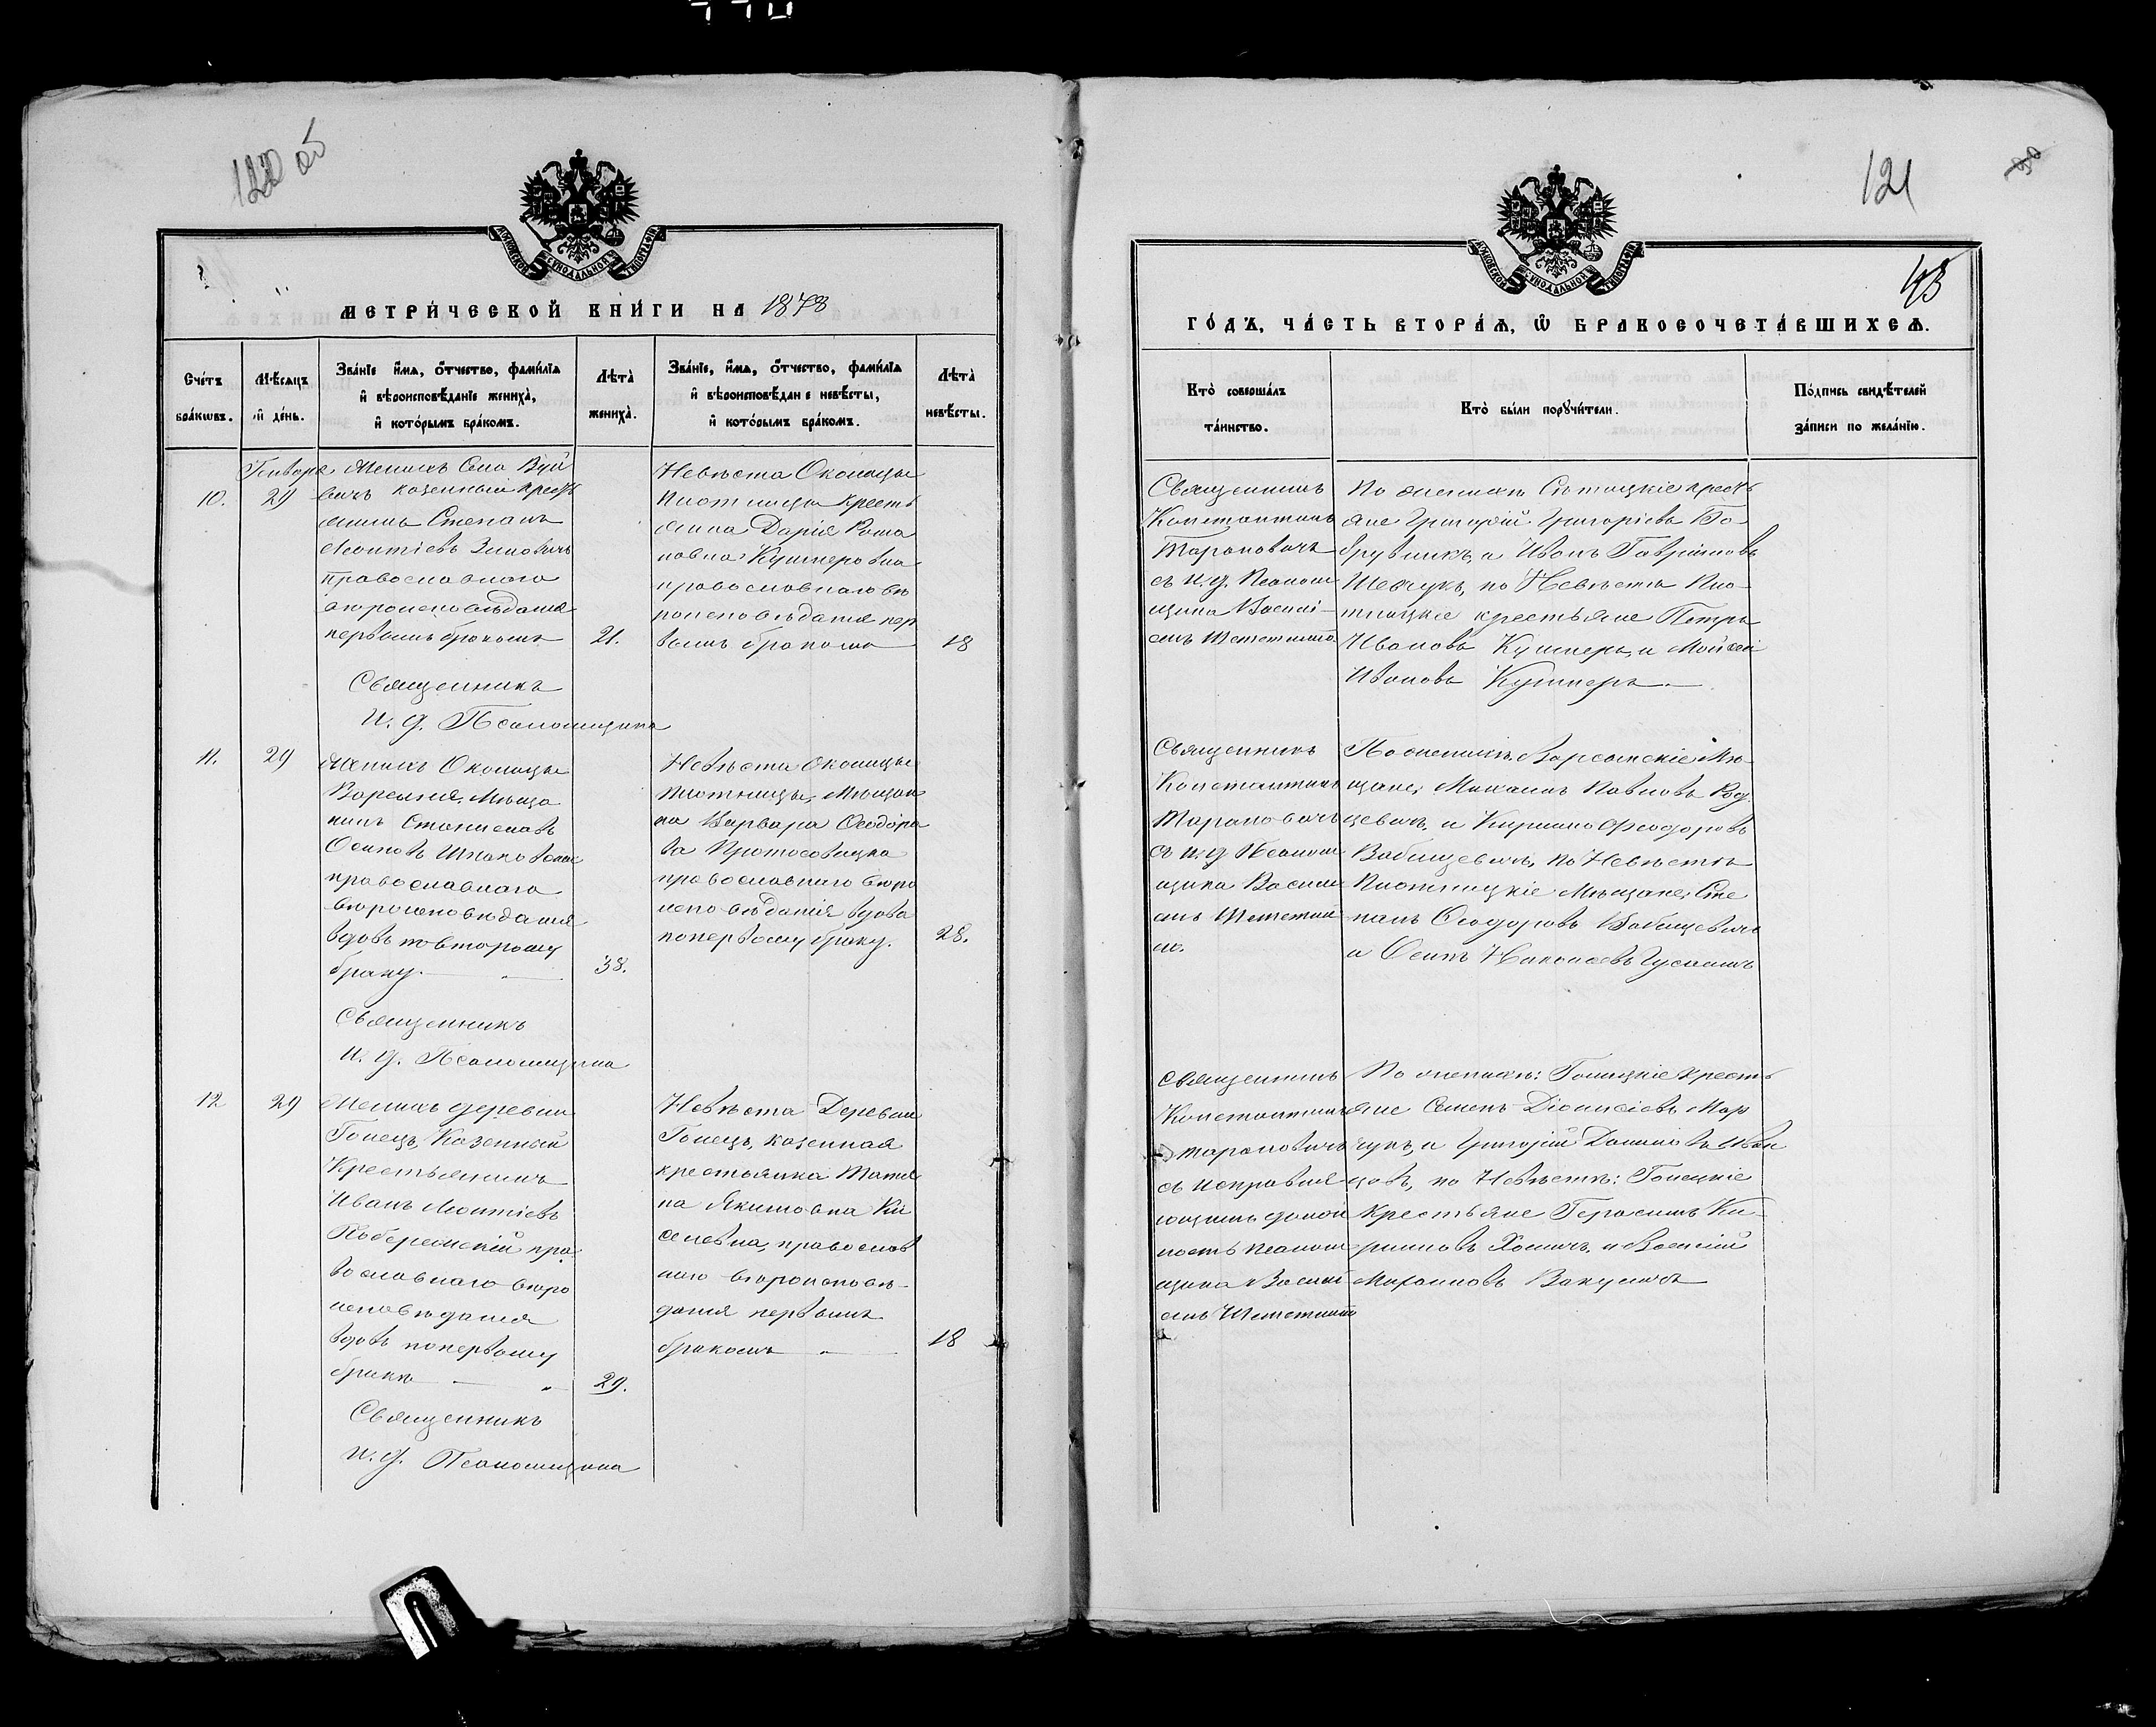 120 об
МЕТРИ́ЧЕСКОЙ КНИ́ГИ НА 1878
Сче́тъ бра́кѡвъ.
Мѣ́сяцъ и҆ де́нь.
Зва́нїе и҆́мѧ, ѻ҆́тчество, фами́лїѧ и҆ вѣ́роисповѣ́данїе жениха̀, и҆ кото́рымъ бра́комъ.
Лѣ́та̀ жениха̀.
Зва́нїе, и҆́мѧ, ѻ҆́тчество, фами́лїѧ и҆ вѣ́роисповѣ́данїе невѣ́сты, и҆ кото́рымъ бра́комъ.
Лѣ́та̀ невѣ́сты.
10.
Января
29
Женихъ Села Вуй
вичъ казенный крест
янинъ Степанъ
Леонтіевъ Зиновичъ
православнаго
вѣроисповѣданія
первымъ бракомъ
21.
Невѣста Околицы
Плотницы крест
янка Дарія Рома
новна Кушнеровна
православнаго вѣ
роисповѣданія пер
вымъ бракомъ
18
Священникъ
И. д. Псаломщика
11.
29
Женихъ Околицы
Мѣща
нинъ Станиславъ
Осиповъ
православнаго
вѣроисповѣданія
вдовъ повторому
браку.
38.
Невѣста Околицы
Плотницы, Мѣщан
ка Варвара Ѳеодоро
ва Протосовицка
православнаго вѣро
исповѣданія вдова
поперьвому браку.
28.
Священникъ
И. д. Псаломщика
12
29
Женихъ деревни
Гонецъ, Казенный
Крестьянинъ
Иванъ Леонтіевъ
Побережскій пра
вославнаго вѣро
исповѣданія
вдовъ поперьвому
бракѣ
29.
Невѣста Деревни
Гонецъ, казенная
крестьянка Татья
на Якимовна Ки
селевна, православ
наго вѣроисповѣ-
данія первымъ
бракомъ
18
Священникъ
И. д. Псаломщика
121
43
ГО́ДЪ, ЧА́СТЬ ВТОРА́Ѧ, Ѡ҆ БРАКОСОЧЕТА́ВШИХСѦ.
Кто̀ соверша́лъ та́инство.
Кто̀ бы́ли порꙋчи́тели.
По́дпись свидѣ́телей за́писи по жела́нїю.
Священникъ
Константинъ
Тарановичъ
съ и. д. Псалом
щика Василі-
емъ
По женихѣ крест
яне Григорій Григоріевъ Бо-
бруйникъ, и Иванъ Гавріиловъ
Шевчукъ, по Невѣстѣ Пло-
тницкіе крестьяне Петръ
Ивановъ Кушнеръ, и Мойсей
Ивановъ Кушнеръ.
Священникъ
Константинъ
Тарановичъ
съ и. д Псалом
щика Васили
емъ
По женихѣ Мѣ-
щане; Михаилъ Павловъ Род
цевичъ, и Кирило Ѳеодоровъ
Бабищевичъ, по Невѣстѣ
Плотницкіе Мѣщане; Сте
панъ Ѳеодоровъ Бабищевичъ
и Осипъ Николаевъ
Священникъ
Константинъ
Тарановичъ
съ исправля
ющимъ долж
ность псалом
щика Васили
емъ
По женихѣ: Гонецкіе крест
яне Семенъ Діонисіевъ Мар
чукъ, и Григорій Даниловъ Иван
цовъ, по Невѣстѣ: Гонецкіе
Крестьяне Герасимъ Ки-
риловъ Хомичъ, и Василій
Михаиловъ Вакуличъ